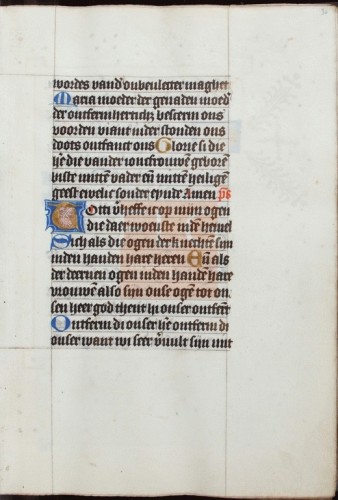 wordes vand' onbeuletter maghet
Maria moeder der genaden moed'
der ontfermherticħ bescerm ons
voorden viant inder stonden ons
doots ontfanct ons Glorie si die
he die vander ioncfrouwē geborē
biste mittē vader eñ mittē heiligē
geest ewelic sonder eynde Amen ps
Totti v'heffe ic op mijn ogen
die daer woenste inde hemel
Sich als die ogen der knechtē sijn
inden handen hare heren Eñ als
der deernen ogen inden handē hare
vrouwē also sijn onse ogē tot on
sen heer god thent hi onser ontfēt
Ontferm di onser he ontferm di
onser want wi seer v'vult sijn mit